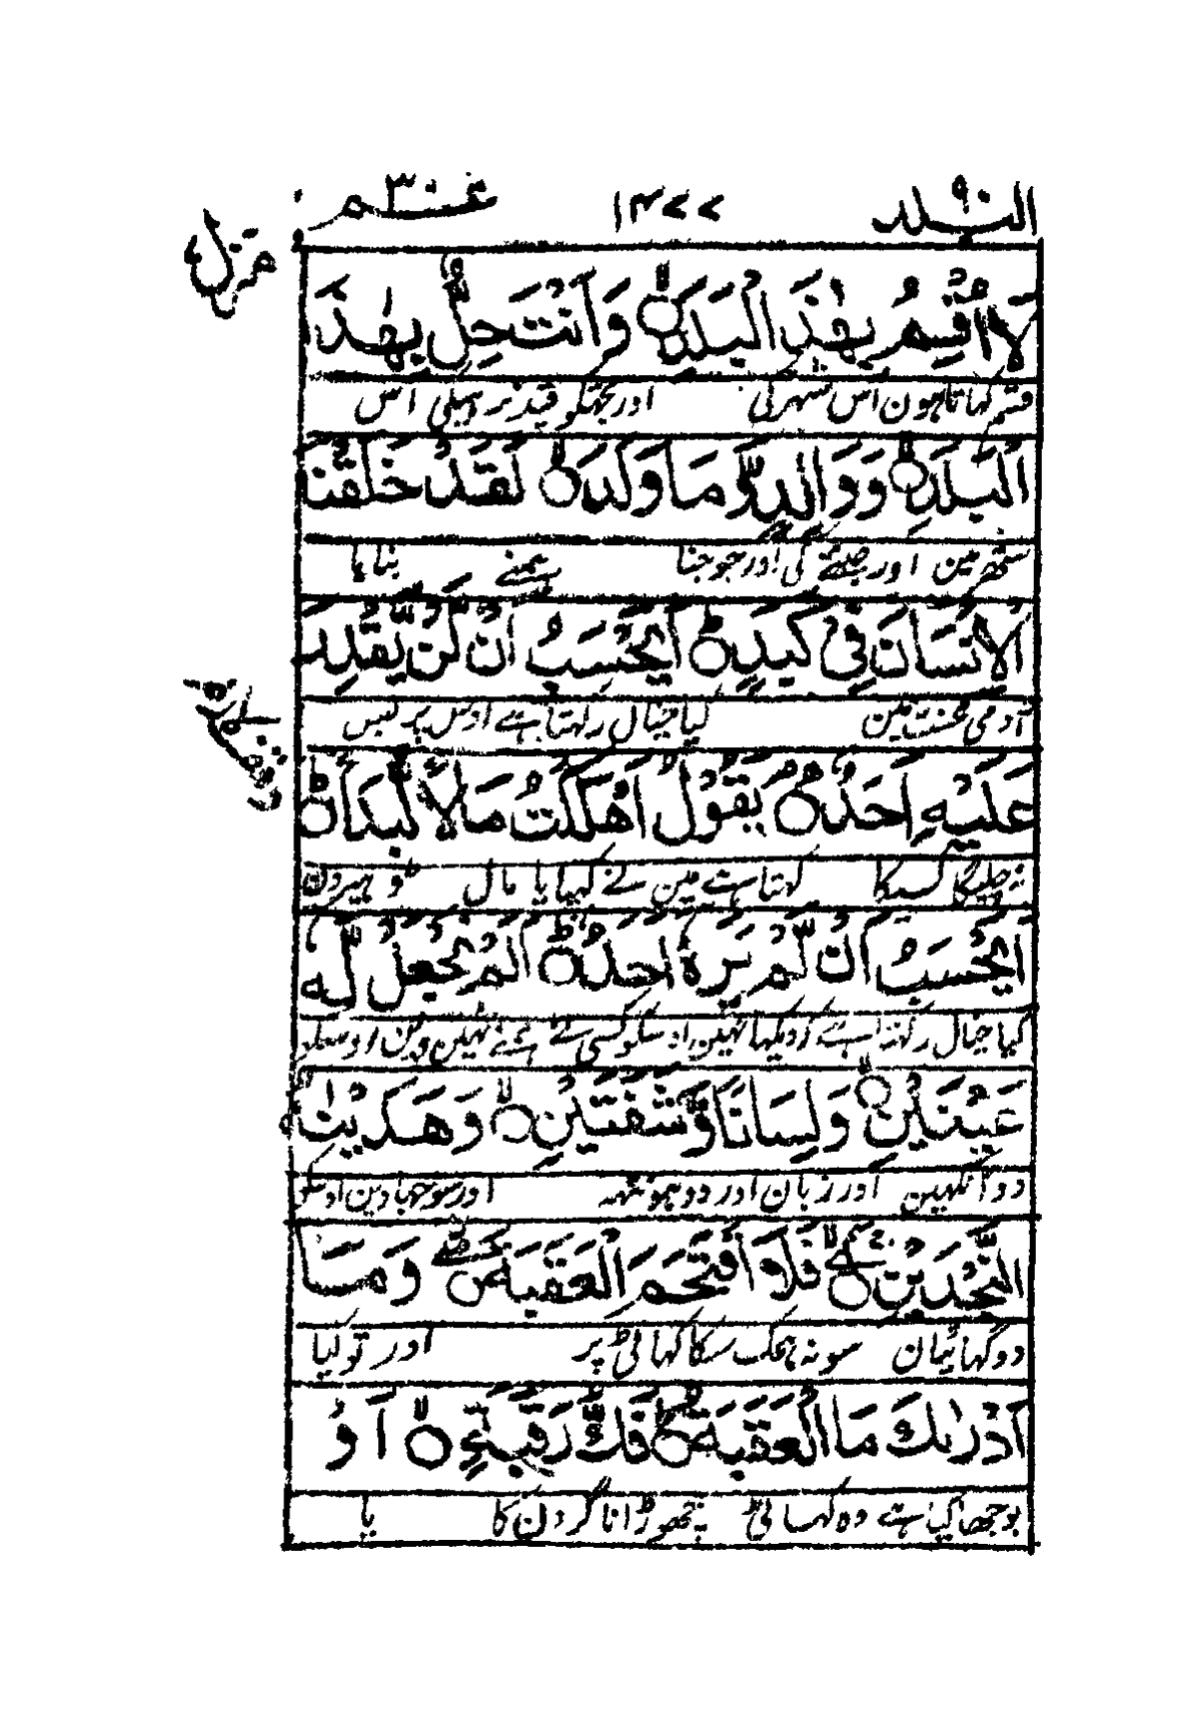 البلد ٩٠ ١٤٧٧ عم ٣٠
منزل
لَا أُقْسِمُ بِهٰذَا الْبَلَدِ ۙ وَاَنْتَ حِلٌّۢ بِهٰذَا
قسم کہاتا ہون اس شہر کی اور تجہکو قید نہ رہیگی اس
الْبَلَدِ ۙ وَوَالِدٍ وَّمَا وَلَدَ ۙ لَقَدْ خَلَقْنَا
شہر مین اور جنتے کی اور جو جنا ہمنے بنایا
الْاِنْسَانَ فِیْ كَبَدٍ ؕ اَیَحْسَبُ اَنْ لَّنْ یَّقْدِرَ
آدمی محنت مین کیا خیال رکہتا ہے اوس پر بس
عَلَیْهِ اَحَدٌ ۘ یَقُوْلُ اَهْلَكْتُ مَالًا لُّبَدًا ؕ
نہ چلیگا کسیکا کہتا ہے مین نے کہپایا مال ڈہیرون
اَیَحْسَبُ اَنْ لَّمْ یَرَهٗ اَحَدٌ ؕ اَلَمْ نَجْعَلْ لَّهٗ
کیا خیال رکہتا ہے کہ دیکہا نہین اوسکو کسی نے ہمنے نہین دین اوسکو
عَیْنَیْنِ ۙ وَلِسَانًا وَّشَفَتَیْنِ ۙ وَهَدَیْنٰهُ
دو آنکہین اور زبان اور دو ہونٹہہ اور سوجہا دین اوسکو
النَّجْدَیْنِ ۚ فَلَا اقْتَحَمَ الْعَقَبَةَ وَمَا
دو گہاٹیان سو نہ ہمک سکا گہاٹی پر اور تو کیا
اَدْرٰىكَ مَا الْعَقَبَةُ ؕ فَكُّ رَقَبَةٍ ۙ اَوْ
بوجہا کیا ہے وہ گہاٹی چہوڑانا گردن کا یا